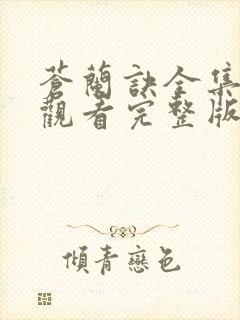 蒼蘭訣全集
觀看完整版
傾青戀色